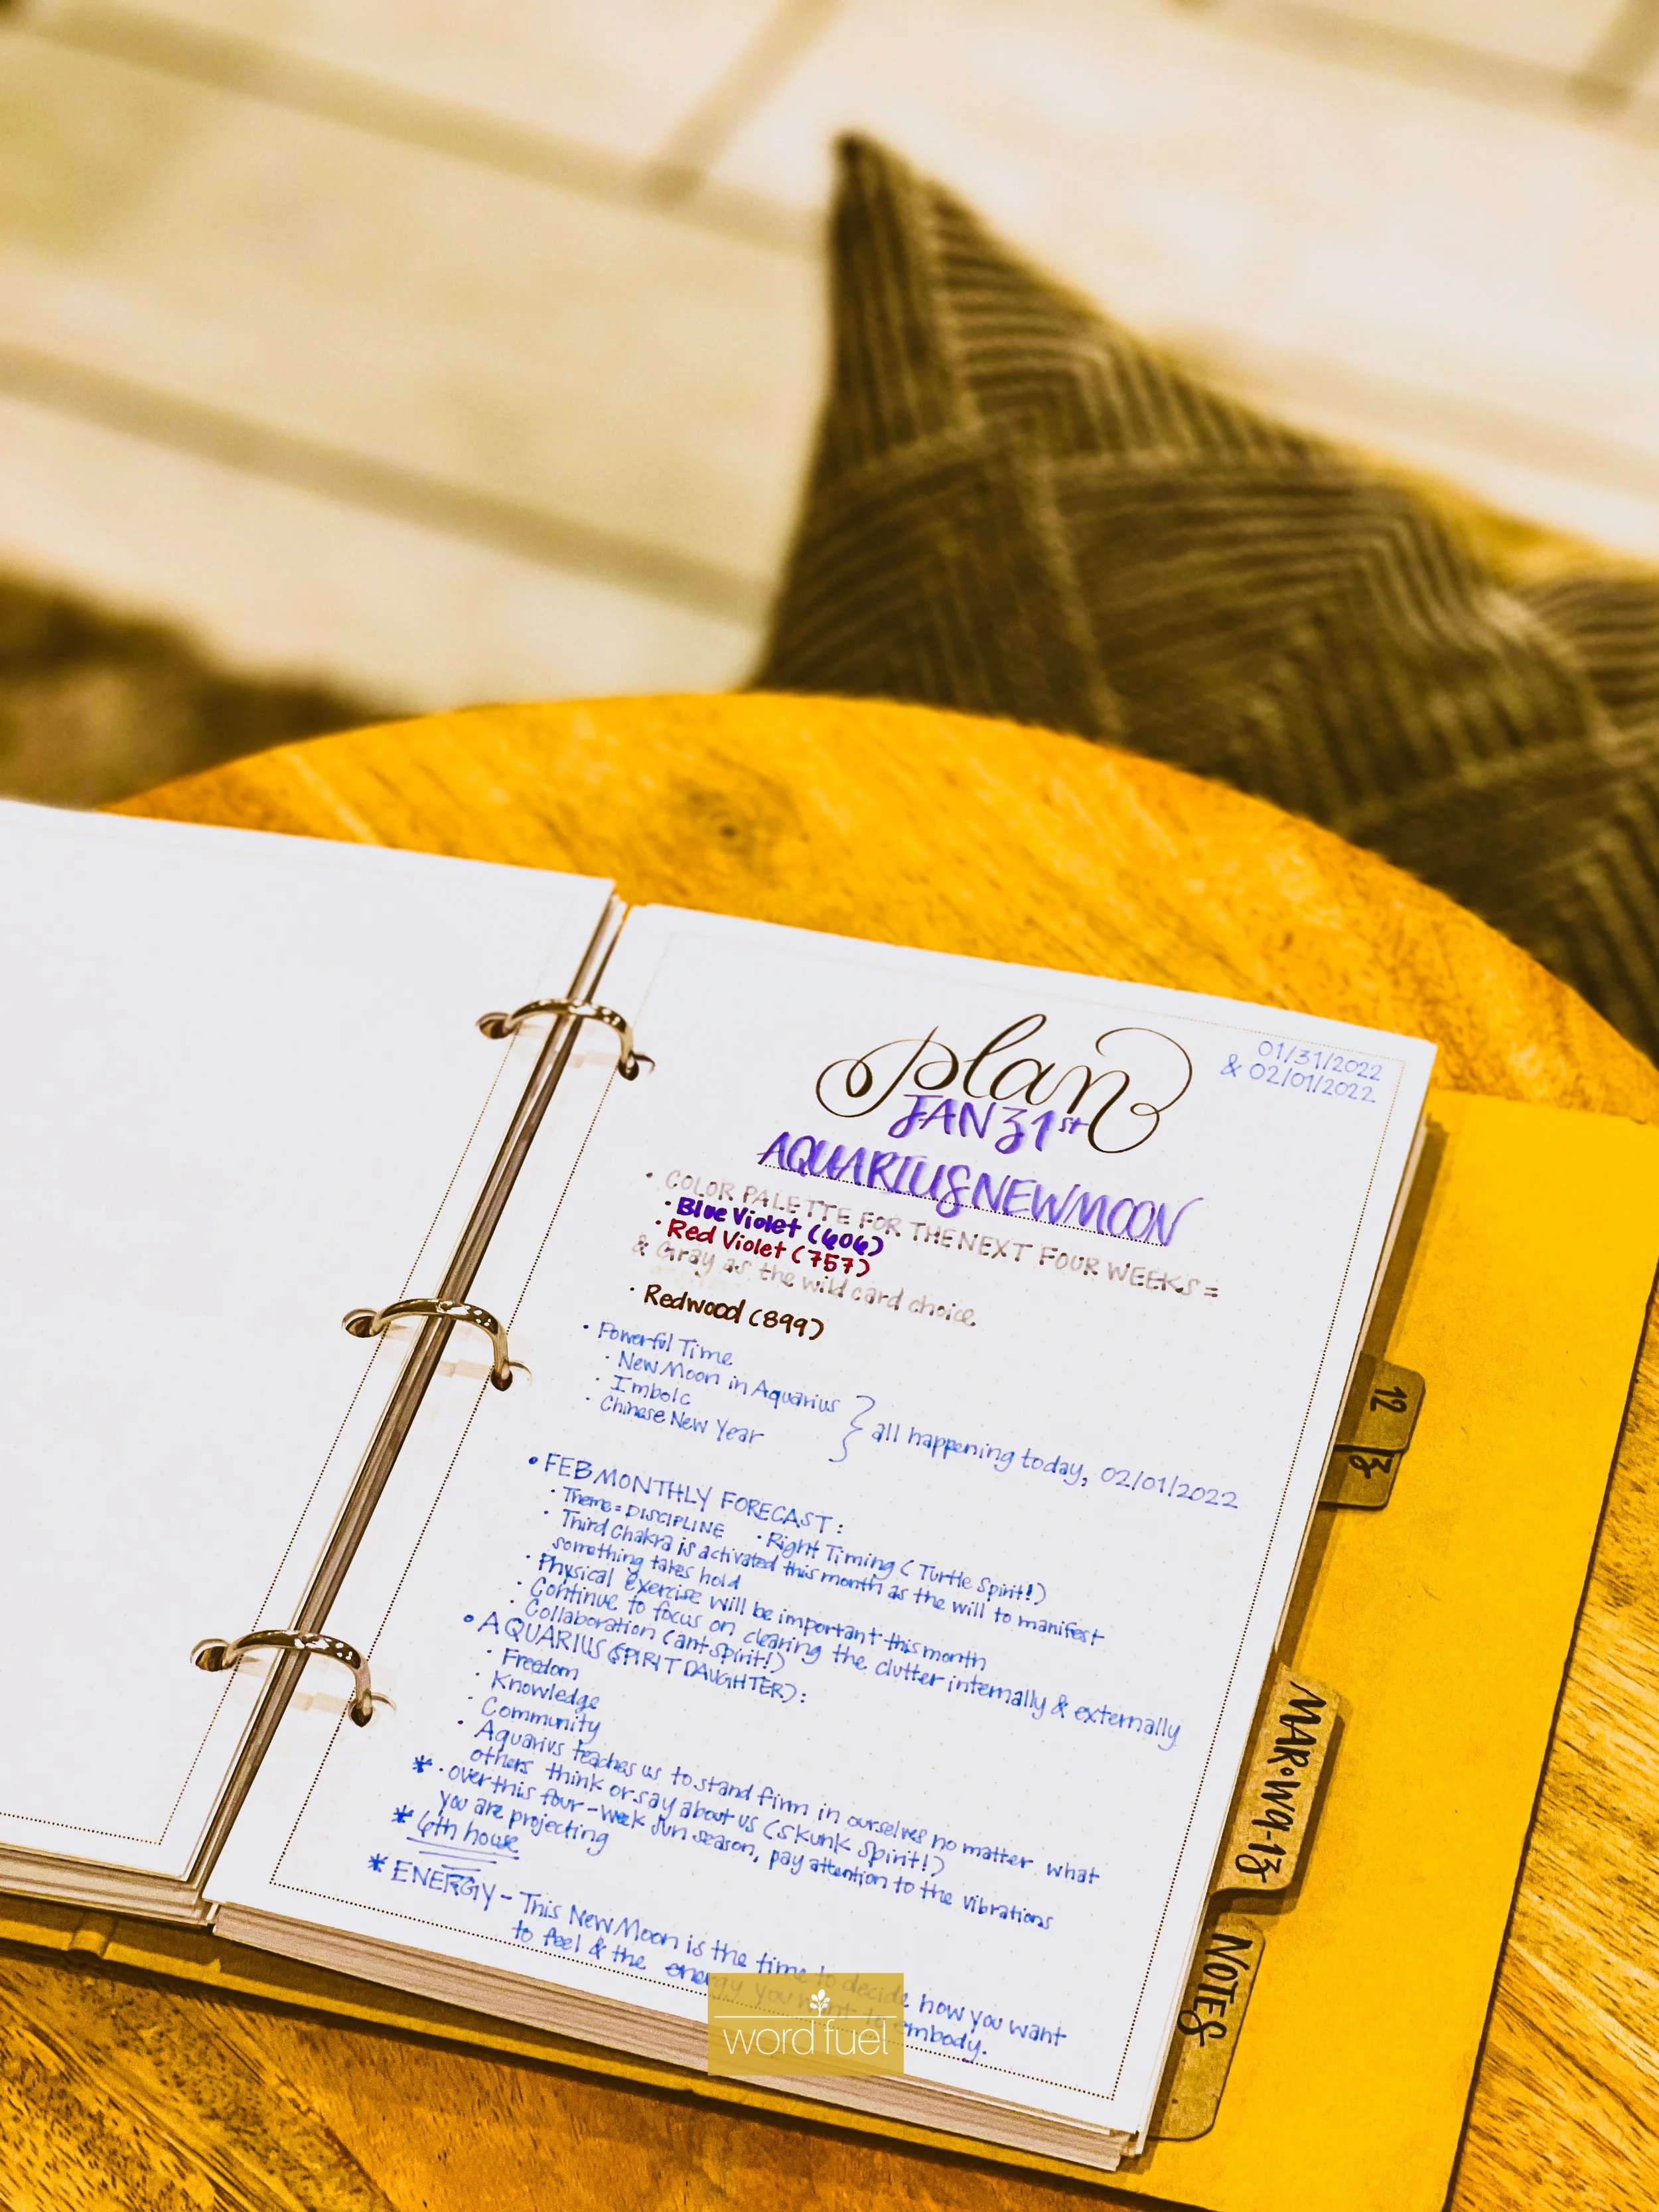 plan
01/31/2022
& 02/01/2022
JAN 31st
AQUARIUS NEW MOON
• COLOR PALETTE FOR THE NEXT FOUR WEEKS =
• Blue Violet (606)
• Red Violet (757)
& Gray as the wild card choice
• Redwood (899)
• Powerful Time
• New Moon in Aquarius
• Imbolc
• Chinese New Year
} all happening today, 02/01/2022
• FEB MONTHLY FORECAST:
• Theme = DISCIPLINE • Right Timing (Turtle Spirit!)
• Third Chakra is activated this month as the will to manifest
something takes hold
• Physical exercise will be important this month
• Continue to focus on clearing the clutter internally & externally
• Collaboration (ant spirit!)
• AQUARIUS (SPIRIT DAUGHTER):
• Freedom
• Knowledge
• Community
• Aquarius teaches us to stand firm in ourselves no matter what
others think or say about us (skunk spirit!)
* • over this four-week sun season, pay attention to the vibrations
you are projecting
* 6th house
* ENERGY - This New Moon is the time to decide how you want
to feel & the energy you want to embody.
12
13
MAR•W9-13
NOTES
word fuel